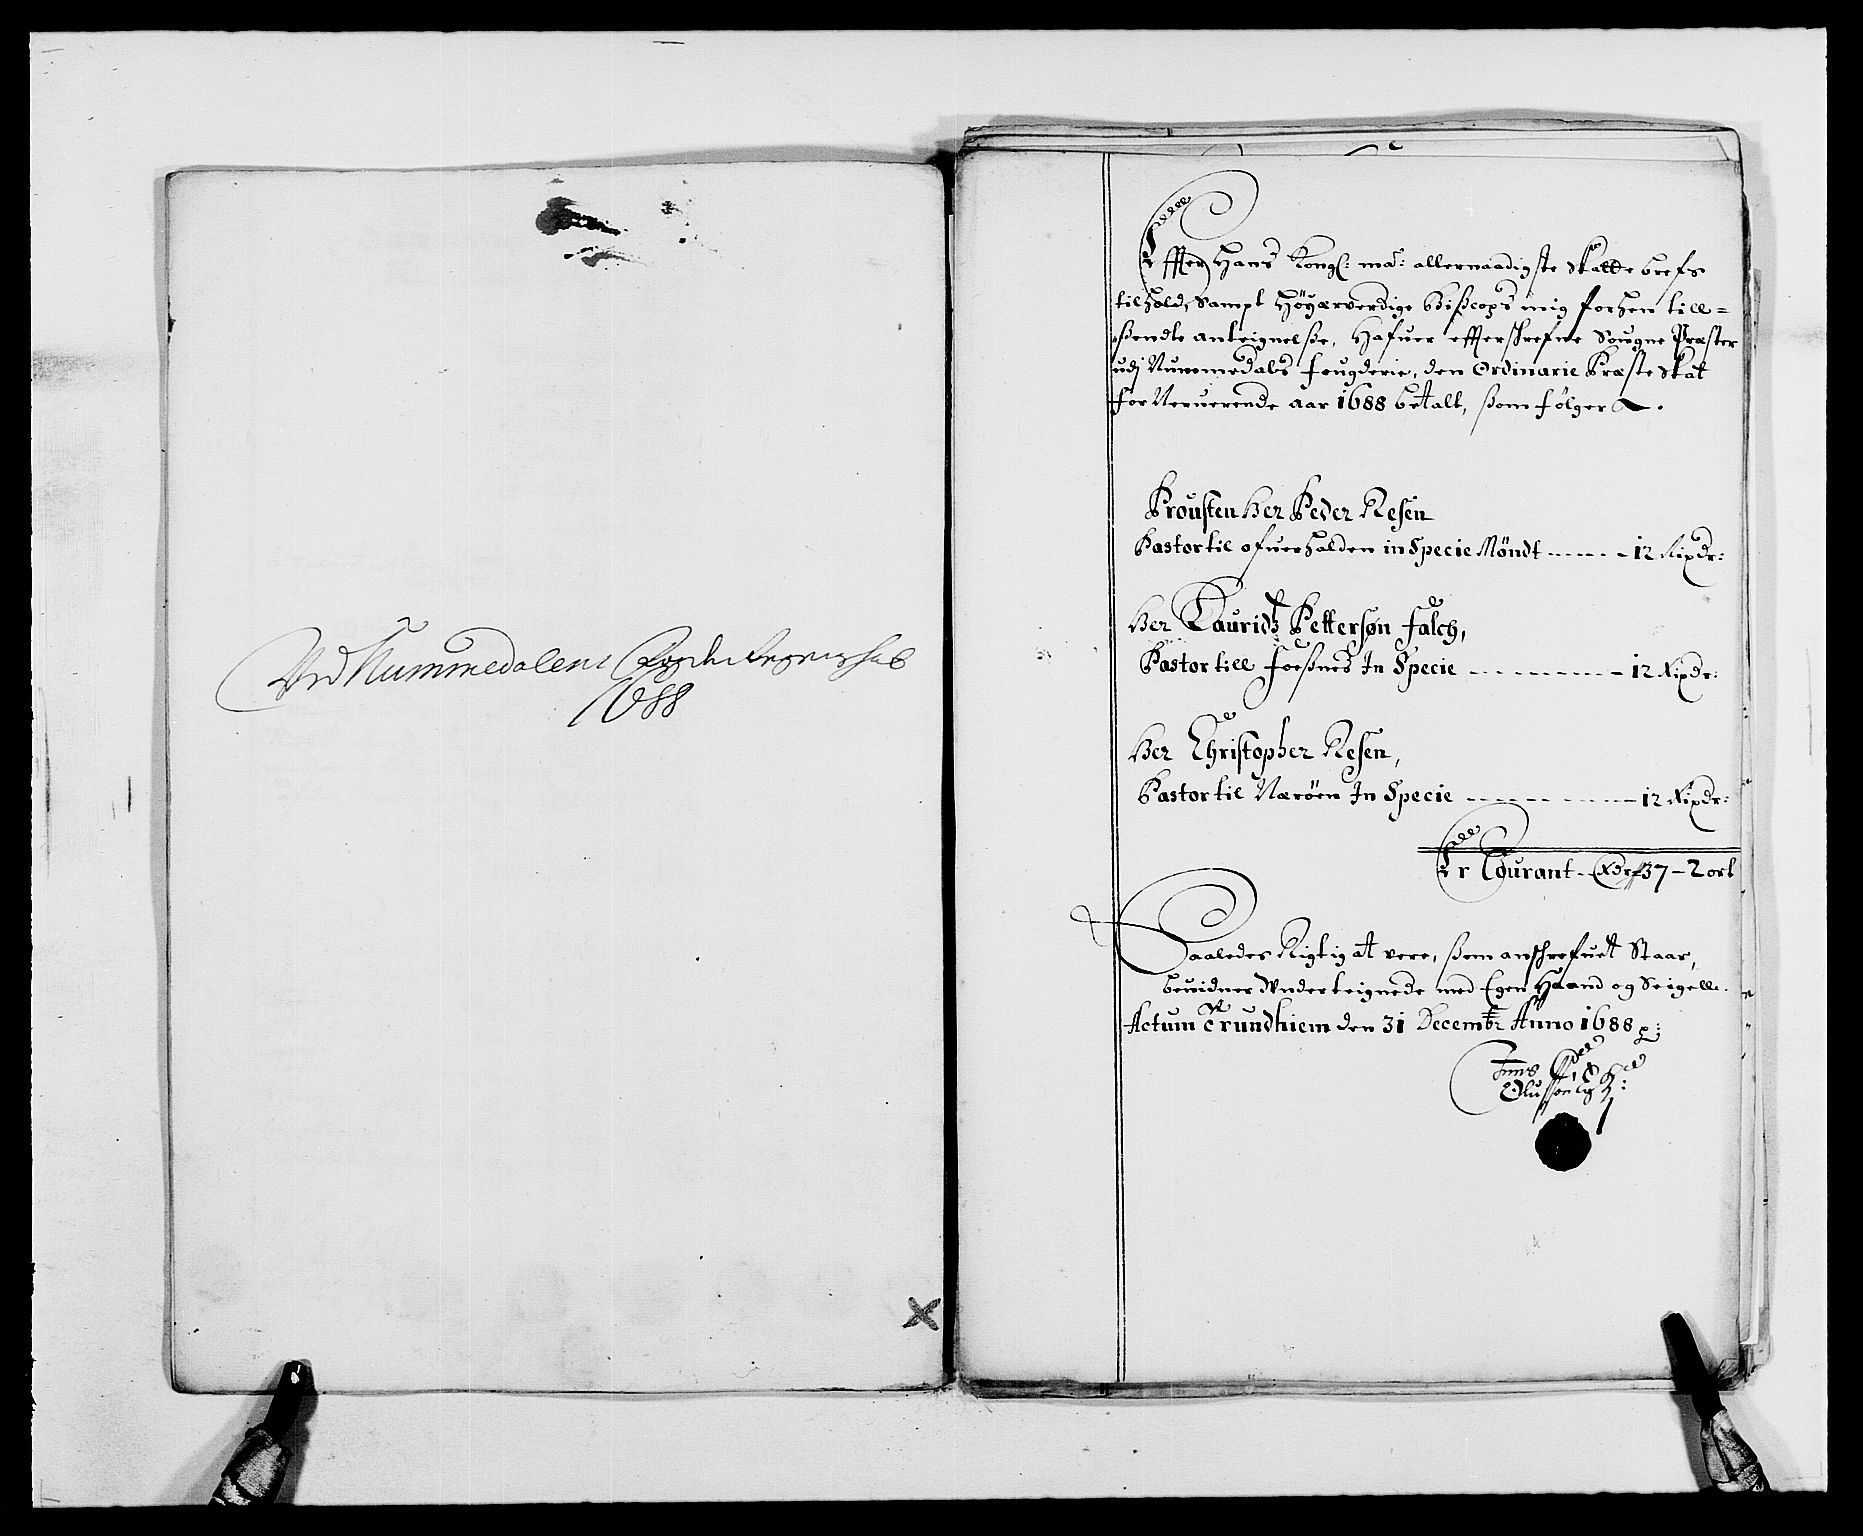 Ved Nummedalens Fogderi Regenschab
1688
Effter Hans Kongl: ma: allernaadigste Skatte brefs
tilhold, Sampt Höyærverdige Bißcops mig forhen till=
ßendte anteignelße, Hafuer effterskrefne Sougne Præster
udj Nummedals fougderie, den Ordinarie Præste Skat
for Neruerende aar 1688 betalt, ßom følger
Prousten Her Peder Resen
Pastor til ofuerhalden in Specie Möndt - - - - - 12 Rixdr:
Her Lauridtz Pettersøn falch,
Pastor till Foeßnes In Specie - - - - - - - - 12 Rixdr:
Her Christopher Resen,
Pastor til Næröen In Specie - - - - - - - - 12 Rixdr:
Er Courant - Rdr 37 - 2 ort
Saaledes Rigtig at vere, ßom anskrefuet Staar,
bewidner Underteignede med Egen Haand og Seigelle.
Actum Trundhiem den 31 Decembr Anno 1688 p:
Jens
Olussøn